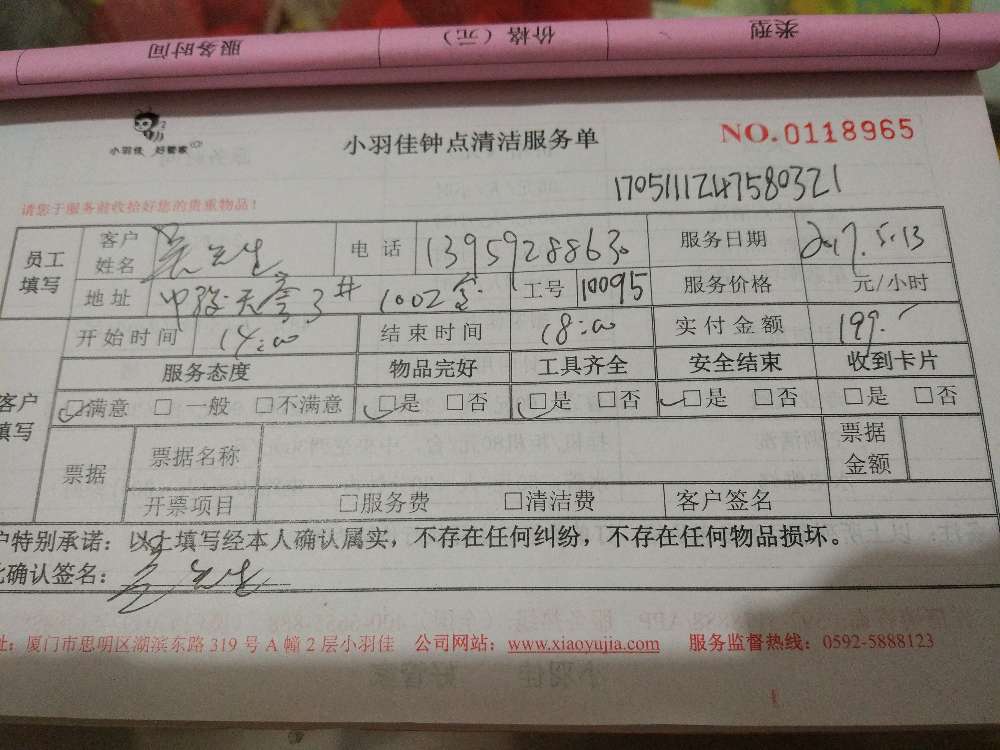 服务时间 价格（元） 类型
小羽佳 好管家
小羽佳钟点清洁服务单
NO.0118965
1705111247580321
请您于服务前收拾好您的贵重物品！
员工填写 客户姓名 先生 电话 13959288630 服务日期 2017.5.13
地址 3# 1002室 工号 10095 服务价格 元/小时
开始时间 14:00 结束时间 18:00 实付金额 199.
客户填写 服务态度 物品完好 工具齐全 安全结束 收到卡片
☑满意 □一般 □不满意 ☑是 □否 ☑是 □否 ☑是 □否 □是 □否
票据 票据名称 票据金额
开票项目 □服务费 □清洁费 客户签名
户特别承诺：以上填写经本人确认属实，不存在任何纠纷，不存在任何物品损坏。
此确认签名： 先生
址：厦门市思明区湖滨东路 319 号 A 幢 2 层小羽佳 公司网站：www.xiaoyujia.com 服务监督热线：0592-5888123
小羽佳 好管家